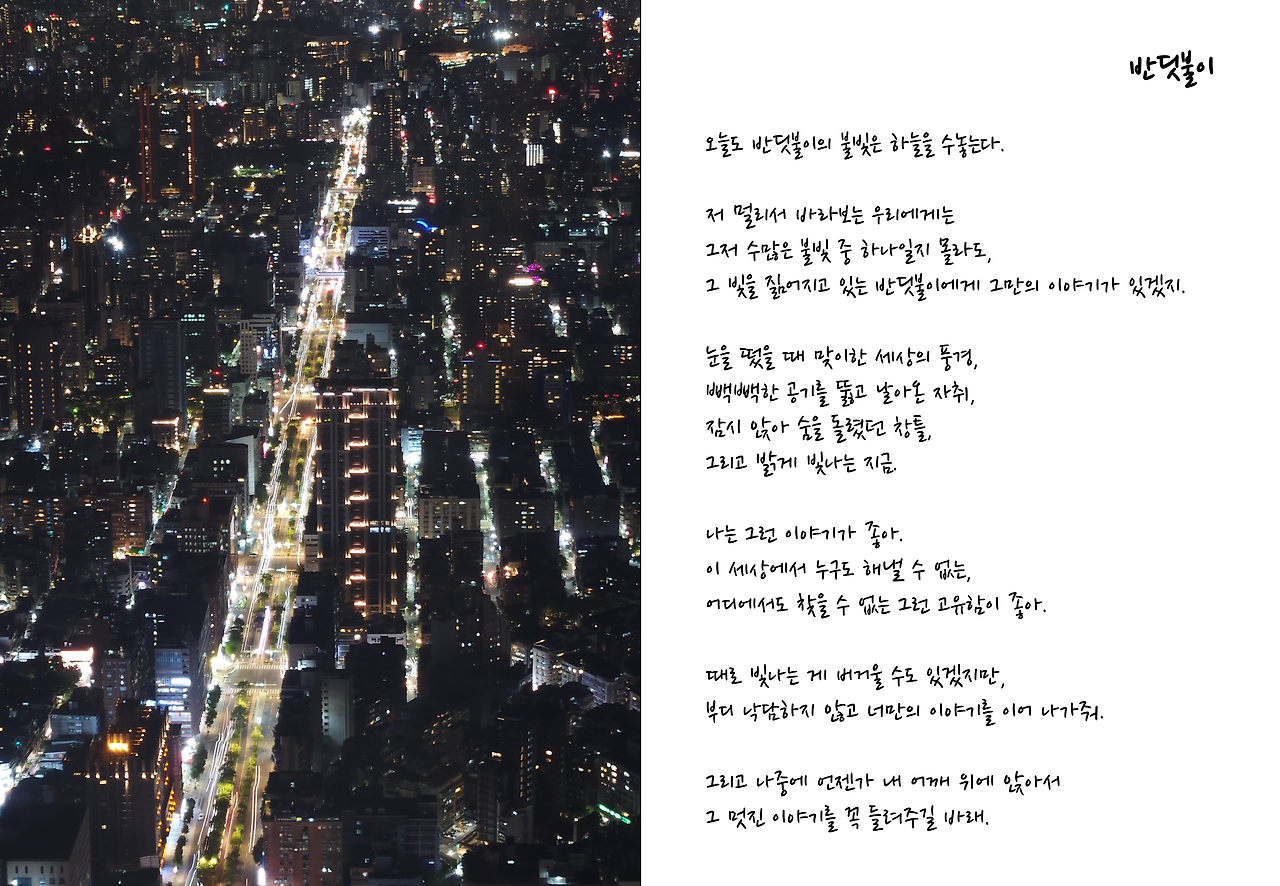 반딧불이
오늘도 반딧불이의 불빛은 하늘을 수놓는다.
저 멀리서 바라보는 우리에게는
그저 수많은 불빛 중 하나일지 몰라도,
그 빛을 짊어지고 있는 반딧불이에게 그만의 이야기가 있겠지.
눈을 떴을 때 맞이한 세상의 풍경,
빽빽한 공기를 뚫고 날아온 자취,
잠시 앉아 숨을 돌렸던 창틀,
그리고 밝게 빛나는 지금.
나는 그런 이야기가 좋아.
이 세상에서 누구도 해낼 수 없는,
어디에서도 찾을 수 없는 그런 고유함이 좋아.
때로 빛나는 게 버거울 수도 있겠지만,
부디 낙담하지 않고 너만의 이야기를 이어 나가줘.
그리고 나중에 언젠가 내 어깨 위에 앉아서
그 멋진 이야기를 꼭 들려주길 바래.